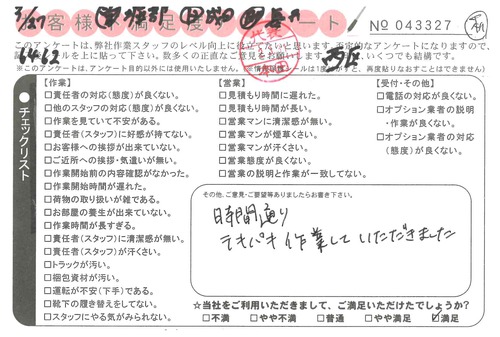 3/27
お客様満足度アンケート
No 043327
このアンケートは、弊社作業スタッフのレベル向上に役立てたいと思います。否定的なアンケートになりますので、
6462
に上に貼って下さい。数多くの正直なご意見をお願い
いくつでも結構です。
※このアンケートは、アンケート目的以外には使用いたしません。
チェックリスト
【作業】
□責任者の対応(態度)が良くない。
□他のスタッフの対応(態度)が良くない。
□作業を見ていて不安がある。
□責任者(スタッフ)に好感が持てない。
□お客様への挨拶が出来ていない。
□ご近所への挨拶・気遣いが無い。
□作業開始前の内容確認がなかった。
□作業開始時間が遅れた。
□荷物の取り扱いが雑である。
□お部屋の養生が出来ていない。
□作業時間が長すぎる。
□責任者(スタッフ)に清潔感が無い。
□責任者(スタッフ)が汗くさい。
□トラックが汚い。
□梱包資材が汚い。
□運転が不安(下手)である。
□靴下の履き替えをしてない。
□スタッフにやる気がみられない。
【営業】
□見積もり時間に遅れた。
□見積もり時間が長い。
□営業マンに清潔感が無い。
□営業マンが煙草くさい。
□営業マンが汗くさい。
□営業態度が良くない。
□営業の説明と作業が一致してない。
【受付・その他】
□電話の対応が良くない。
□オプション業者の説明
・作業が良くない。
□オプション業者の対応
(態度)が良くない。
その他、ご意見・ご要望等ありましたらお書き下さい。
時間通り
テキパキ作業していただきました
☆当社をご利用いただきまして、ご満足いただけたでしょうか?
□不満 □やや不満 □普通 □やや満足 □満足